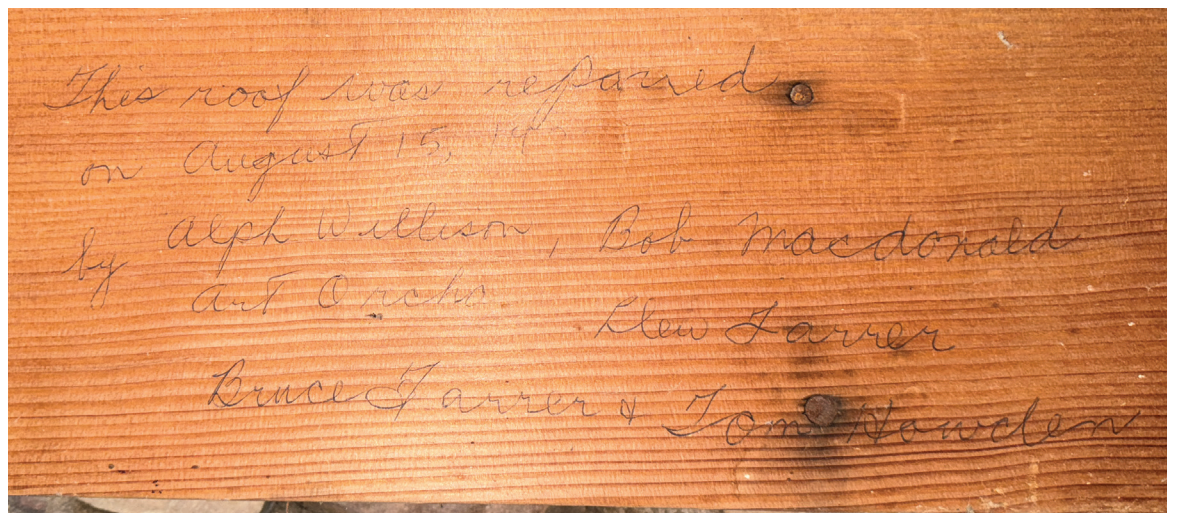 This roof was repaired
on August 15,
by Alph Willison, Bob Macdonald
Art Orcho Clew Farrer
Bruce Farrer & Tom Howden